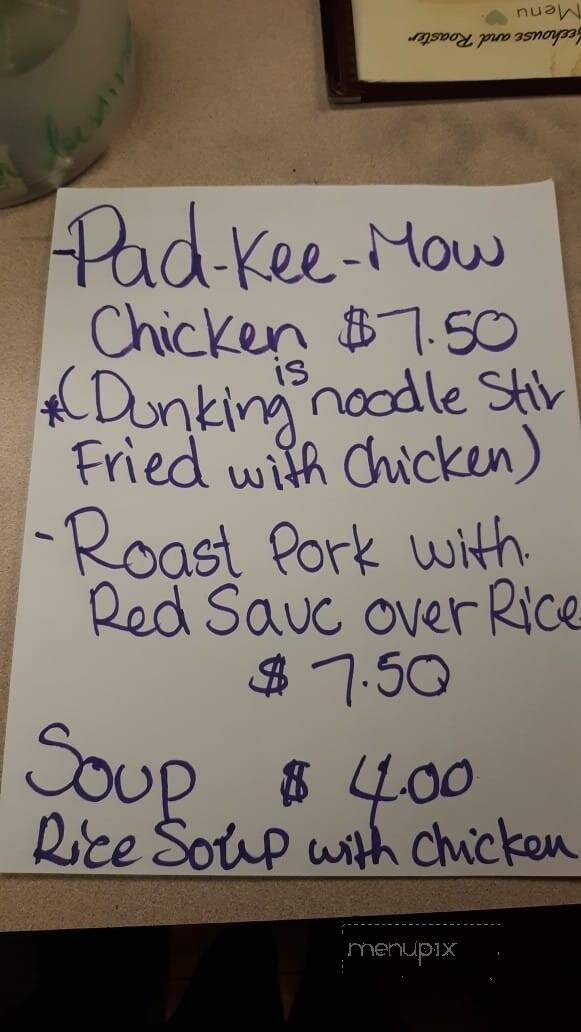 eehouse and Roaster
Menu
-Pad-Kee-Mow
Chicken $7.50
*(Dunking is noodle Stir
Fried with Chicken)
-Roast Pork with.
Red Sauc over Rice
$7.50
Soup $4.00
Rice Soup with Chicken
menupix